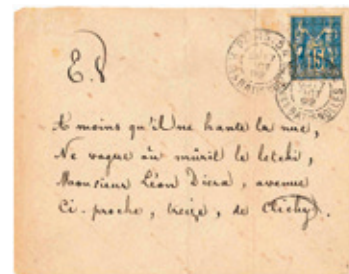 E.V
A moins qu'il ne hante la nue,
Ne vogue où mûrit le letchi,
Monsieur Léon Dierx, avenue
Ci-proche, treize, de Clichy.
15
PARIS